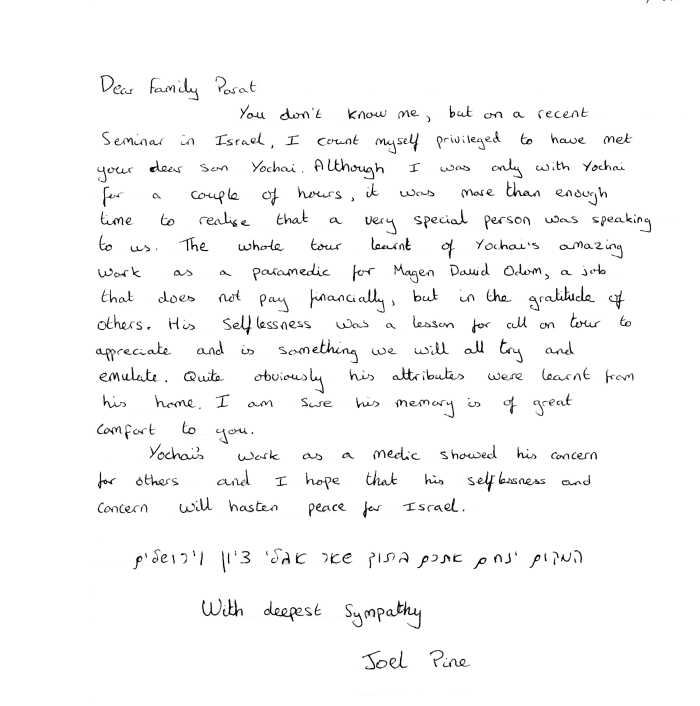 Dear Family Porat
You don't know me, but on a recent
Seminar in Israel, I count myself privileged to have met
your dear son Yochai. Although I was only with Yochai
for a couple of hours, it was more than enough
time to realise that a very special person was speaking
to us. The whole tour learnt of Yochai's amazing
work as a paramedic for Magen David Odom, a job
that does not pay financially, but in the gratitude of
others. His Selflessness was a lesson for all on tour to
appreciate and is something we will all try and
emulate. Quite obviously his attributes were learnt from
his home. I am sure his memory is of great
comfort to you.
Yochai's work as a medic showed his concern
for others and I hope that his selflessness and
concern will hasten peace for Israel.
המקום ינחם אתכם בתוך שאר אבלי ציון וירושלים
With deepest Sympathy
Joel Pine